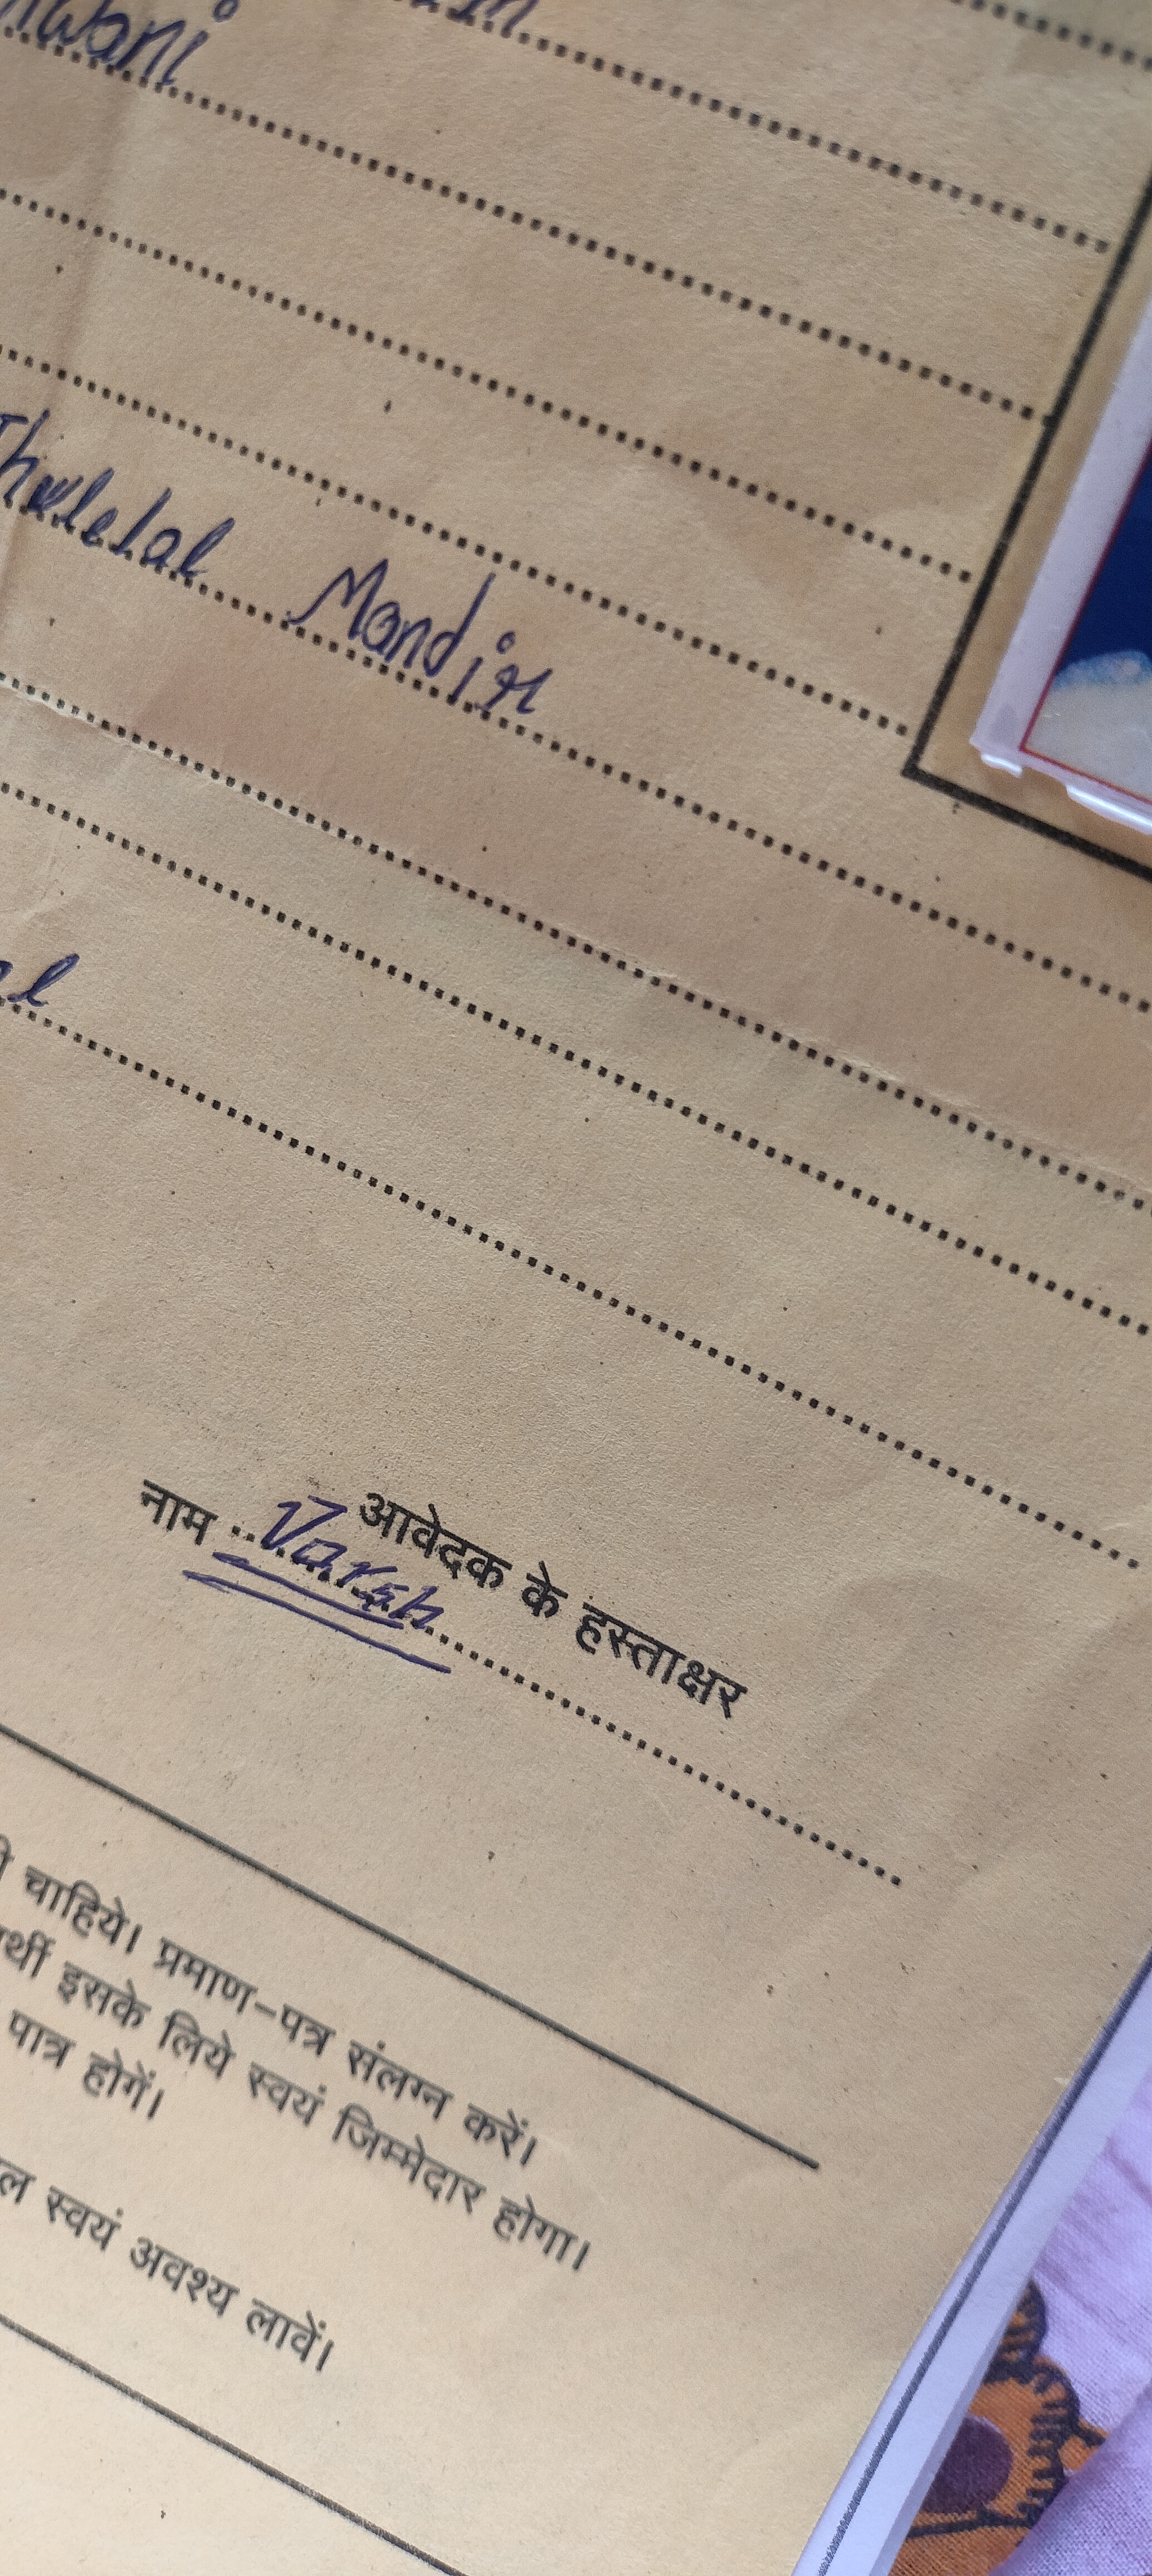 Mandir
आवेदक के हस्ताक्षर
नाम Varsh
चाहिये। प्रमाण-पत्र संलग्न करें।
इसके लिये स्वयं जिम्मेदार होगा।
पात्र होगें।
स्वयं अवश्य लावें।